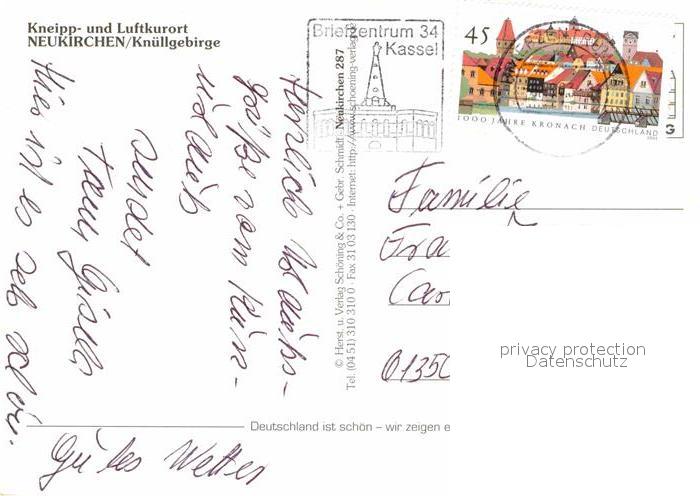 Kneipp- und Luftkurort
NEUKIRCHEN/Knüllgebirge
Briefzentrum 34
Kassel
45
1000 JAHRE KRONACH DEUTSCHLAND
Herzlich Urlaubs-
grüße vom Kurz-
urlaub
sendet
Tante Gisela
Hier ist es seh schön.
Gutes Wetter
© Herst. u. Verlag Schöning & Co. + Gebr. Schmidt · Neukirchen 287
Tel. (04 51) 310 310 0 · Fax 31 03 130 · Internet: http://www.schoening-verlag.de
Familie
Fra
Car
0135
privacy protection
Datenschutz
Deutschland ist schön – wir zeigen e